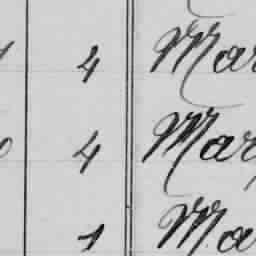 4 Mar
4 Mary
1 Ma